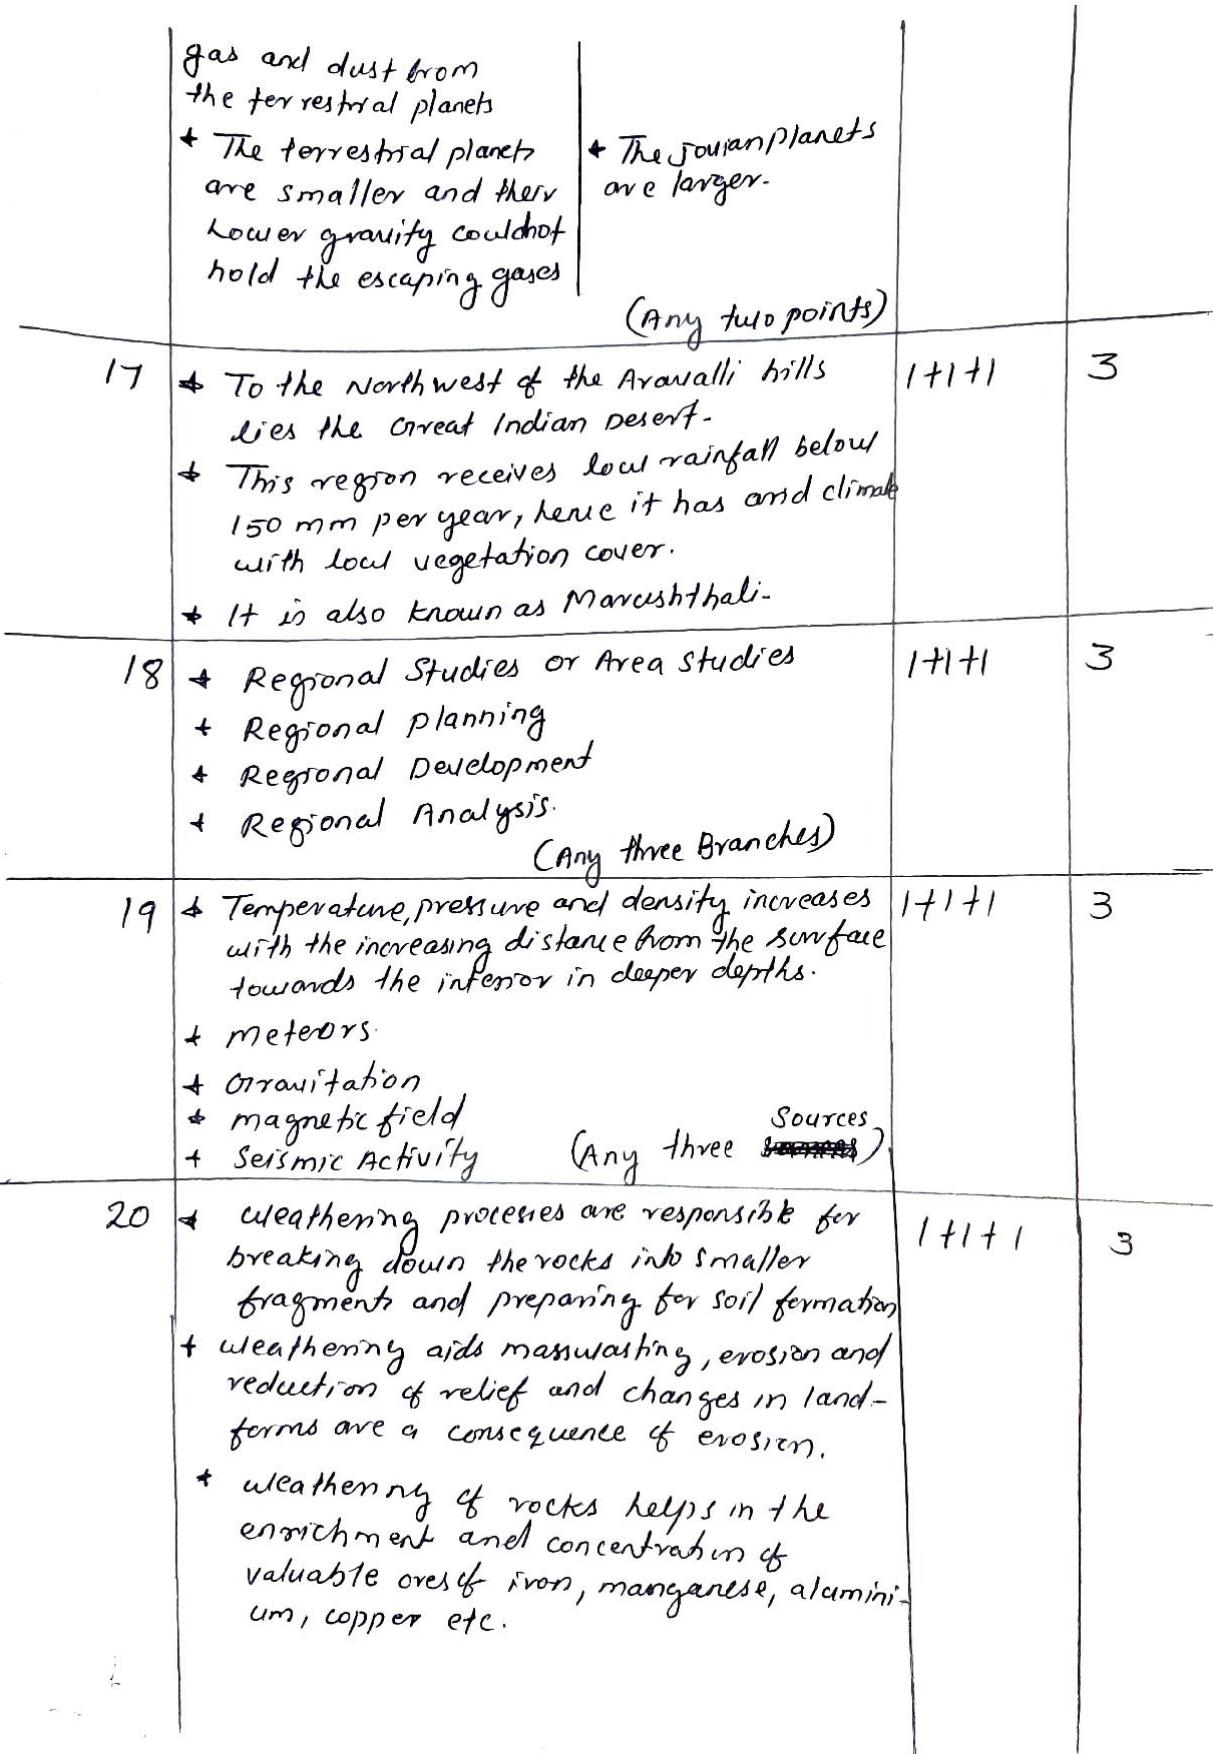 gas and dust from
the terrestrial planets
* The terrestrial planets
are smaller and their
Lower gravity couldnot
hold the escaping gases
* The Jovian planets
are larger.
(Any two points)
17 * To the Northwest of the Aravalli hills 1+1+1 3
lies the Great Indian Desert.
* This region receives low rainfall below
150 mm per year, hence it has arid climate
with low vegetation cover.
* It is also known as Marushthali.
18 * Regional Studies or Area Studies 1+1+1 3
* Regional planning
* Regional Development
* Regional Analysis.
(Any three Branches)
19 * Temperature, pressure and density increases 1+1+1 3
with the increasing distance from the surface
towards the interior in deeper depths.
* Meteors.
* Gravitation
* magnetic field
* Seismic Activity (Any three Sources)
20 * Weathering processes are responsible for 1+1+1 3
breaking down the rocks into smaller
fragments and preparing for soil formation
* Weathering aids masswasting, erosion and
reduction of relief and changes in land-
forms are a consequence of erosion.
* Weathering of rocks helps in the
enrichment and concentration of
valuable ores of iron, manganese, alumini-
um, copper etc.